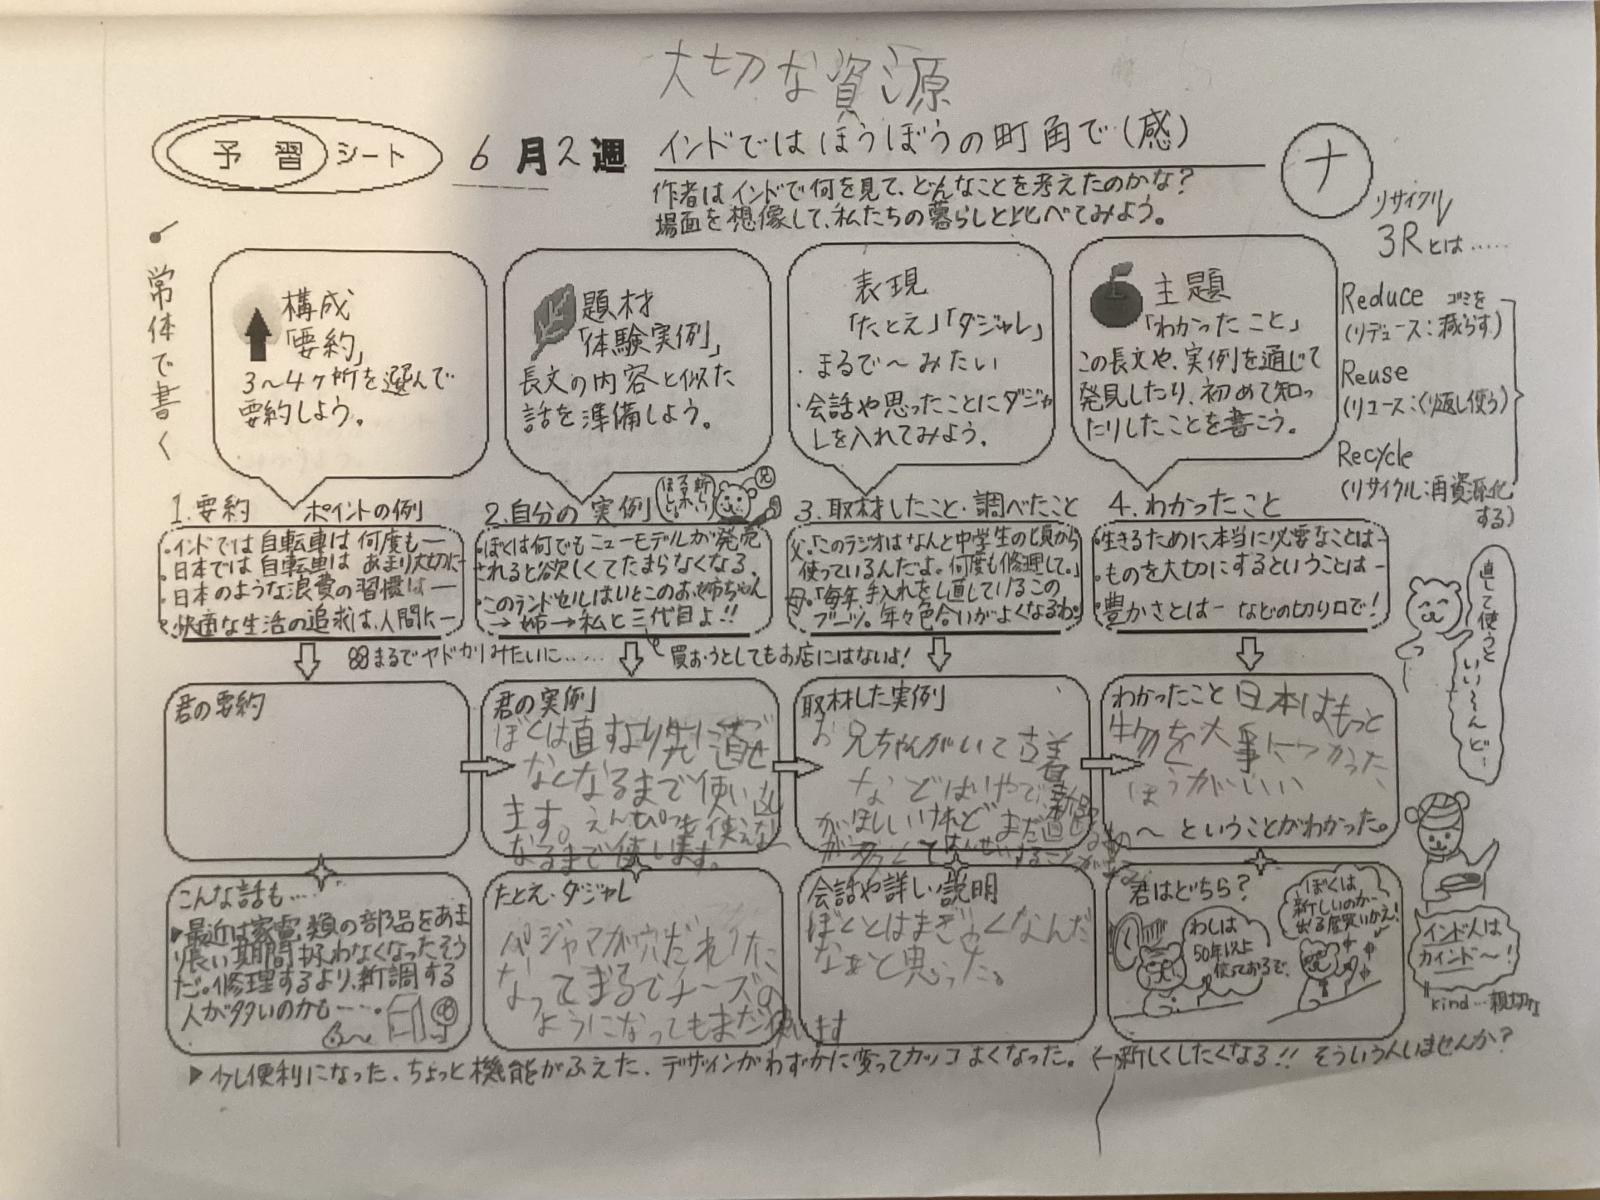 大切な資源
予習シート 6月2週 インドではほうぼうの町角で(感)
ナ
作者はインドで何を見て、どんなことを考えたのかな?
場面を想像して、私たちの暮らしと比べてみよう。
常体で書く
構成
「要約」
3〜4ヶ所を選んで
要約しよう。
題材
「体験実例」
長文の内容と似た
話を準備しよう。
表現
「たとえ」「ダジャレ」
・まるで〜みたい
・会話や思ったことにダジャ
レを入れてみよう。
主題
「わかったこと」
この長文や、実例を通じて
発見したり、初めて知っ
たりしたことを書こう。
リサイクル
3Rとは……
Reduce ゴミを
(リデュース:減らす)
Reuse
(リユース:くり返し使う)
Recycle
(リサイクル:再資源化
する)
1.要約 ポイントの例
・インドでは自転車は何度も―
・日本では自転車はあまり大切に―
・日本のような浪費の習慣は―
・快適な生活の追求は、人間に―
2.自分の実例
・ぼくは何でもニューモデルが発売
されると欲しくてたまらなくなる。
・このランドセルはいとこのお姉ちゃん
→姉→私と三代目よ!!
3.取材したこと・調べたこと
父「このラジオはなんと中学生の頃から
使っているんだよ。何度も修理して。」
母「毎年、手入れをし直しているこの
ブーツ。年々色合いがよくなるわ。
4.わかったこと
・生きるために本当に必要なことは―
・ものを大切にするということは―
・豊かさとは― などの切り口で!
まるでヤドカリみたいに……
買おうとしてもお店にはないよ!
直して使うと
いい〜んど〜
君の要約
君の実例
ぼくは直すより先に
なくなるまで使い
ます。えんぴつを使えなく
なるまで使します。
取材した実例
お兄ちゃんがいて古着
などはいやで新品
がほしいけれどまだ
わかったこと 日本はもっと
物を大事につかった
ほうがいい
〜ということがわかった。
こんな話も……
▶最近は家電類の部品をあま
り長い期間扱わなくなったそう
だ。修理するより、新調する
人が多いのかも……。
たとえ・ダジャレ
パジャマが穴だれけに
なってまるでチーズの
ようになってもまだ使います
会話や詳しい説明
ぼくとはまぎゃくなんだ
なぁと思った。
君はどちら?
わしは
50年以上
使っておるで。
ぼくは
新しいのが
出る度買いかえ!
インド人は
カインド〜!
kind…親切な
▶少し便利になった、ちょっと機能がふえた、デザインがわずかに変ってカッコよくなった。←新しくしたくなる!! そういう人いませんか?